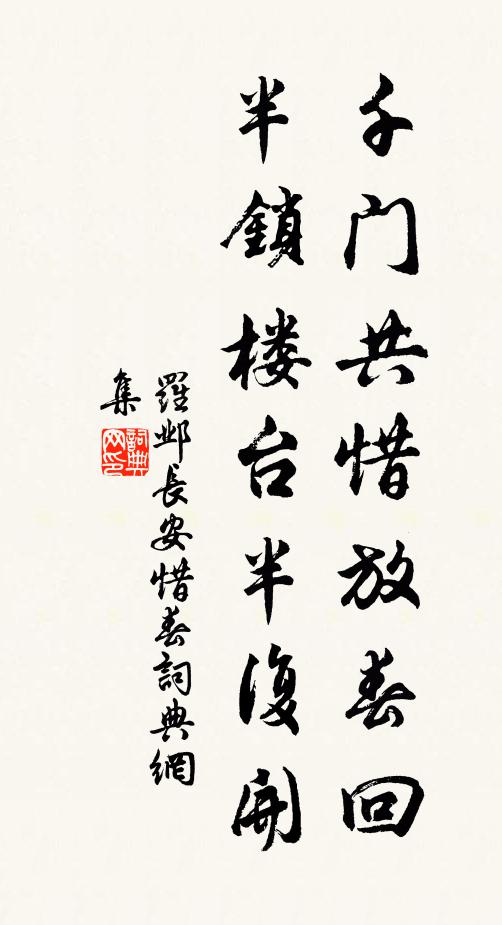 千门共惜放春回
半鎖楼台半復開
羅邺長安惜春詞典網
集
詞典
网印